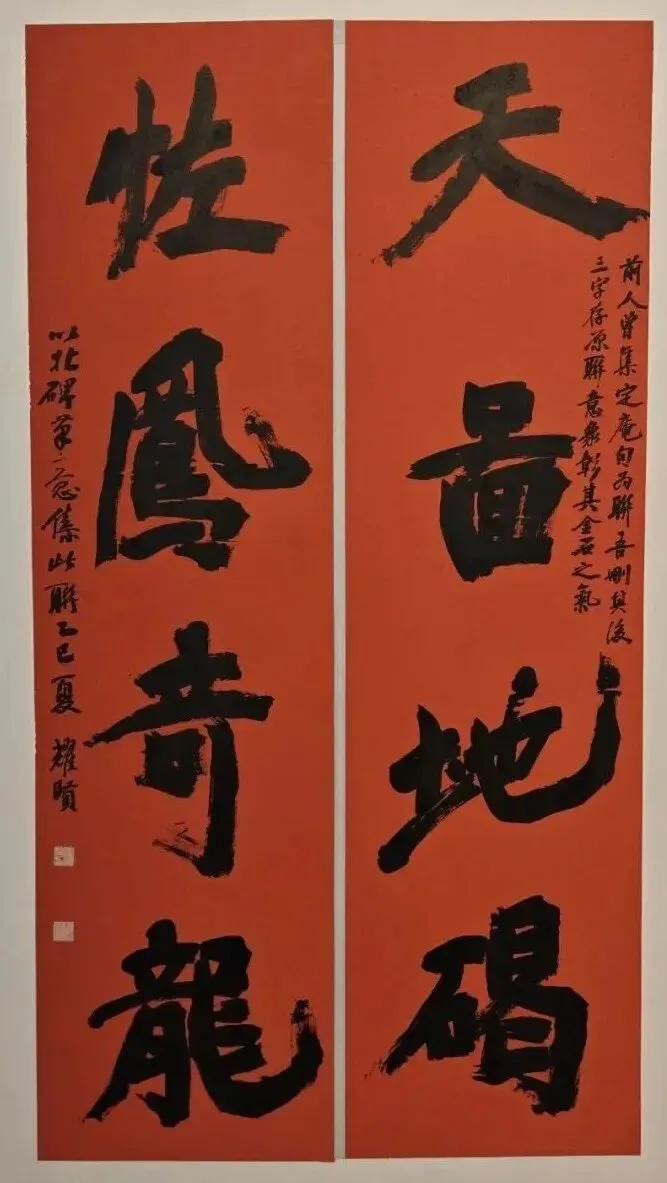 天啚地碣
前人曾集定庵句为聯吾刪其後
三字存原聯意象彰其金石之氣
恠鳳奇龍
以北碑笔意集此聯乙巳夏 耀賢